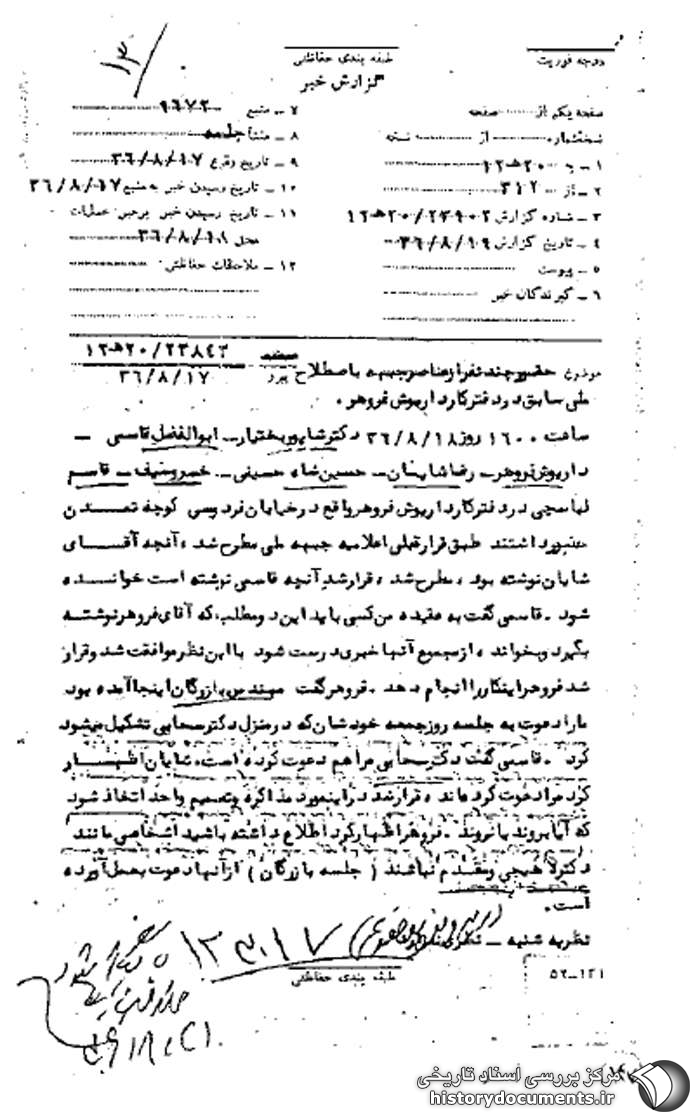 ۱۳
درجه فوریت
طبقه بندی حفاظتی
گزارش خبر
صفحه یکم از صفحه
نسخه‌شماره از نسخه
۱ ـ به ۲۰ ه‍ ۱۲
۲ ـ از ۳۱۲
۳ ـ شماره گزارش
۴ ـ تاریخ گزارش ۳۶/۸/۱۹
۵ ـ پیوست
۶ ـ گیرندگان خبر
۷ ـ منبع ۹۶۷۲
۸ ـ منشأ جلسه
۹ ـ تاریخ وقوع ۳۶/۸/۱۷
۱۰ ـ تاریخ رسیدن خبر به منبع ۳۶/۸/۱۷
۱۱ ـ تاریخ رسیدن خبر برهبر عملیات
محل ۳۶/۸/۱۸
۱۲ ـ ملاحظات حفاظتی
موضوع حضور چند نفر از عناصر جبهه باصطلاح
۲۳۸۴۳/۲۰ ه‍ ۱۲
۳۶/۸/۱۷
ملی سابق در دفتر کار داریوش فروهر .
ساعت ۱۶۰۰ روز ۳۶/۸/۱۸ دکتر شاپور بختیار ـ ابوالفضل قاسمی ـ
داریوش فروهر ـ رضا شایان ـ حسین شاه حسینی ـ خسرو سیف ـ قاسم
لباسچی در دفتر کار داریوش فروهر واقع در خیابان فردوسی کوچه تمدن
حضور داشتند طبق قرار قبلی اعلامیه جبهه ملی مطرح شد ، آنچه آقای
شایان نوشته بود ، مطرح شد ، قرار شد آنچه قاسمی نوشته است خوانده
شود . قاسمی گفت به عقیده من کسی باید این دو مطلب که آقای فروهر نوشته
بگیرد و بخواند ، از مجموع آنها خبری درست شود با این نظر موافقت شد و قرار
شد فروهر اینکار را انجام دهد . فروهر گفت مهندس بازرگان اینجا آمده بود
ما را دعوت به جلسه روز جمعه خودشان که در منزل دکتر سحابی تشکیل میشود
کرد . قاسمی گفت دکتر سحابی مرا هم دعوت کرده است ، شایان اظهار
کرد مرا دعوت کرده‌اند ، قرار شد در اینمورد مذاکره و تصمیم واحد اتخاذ شود
که آیا بروند یا نروند . فروهر اظهار کرد اطلاع داشته باشید اشخاصی مانند
دکتر لاهیجی و مقدم نباشند ( جلسه بازرگان ) از آنها دعوت بعمل آورده
است .
نظریه شنبه ـ
طبقه بندی حفاظتی
۵۲-۱۲۱
مرکز بررسی اسناد تاریخی
historydocuments.ir